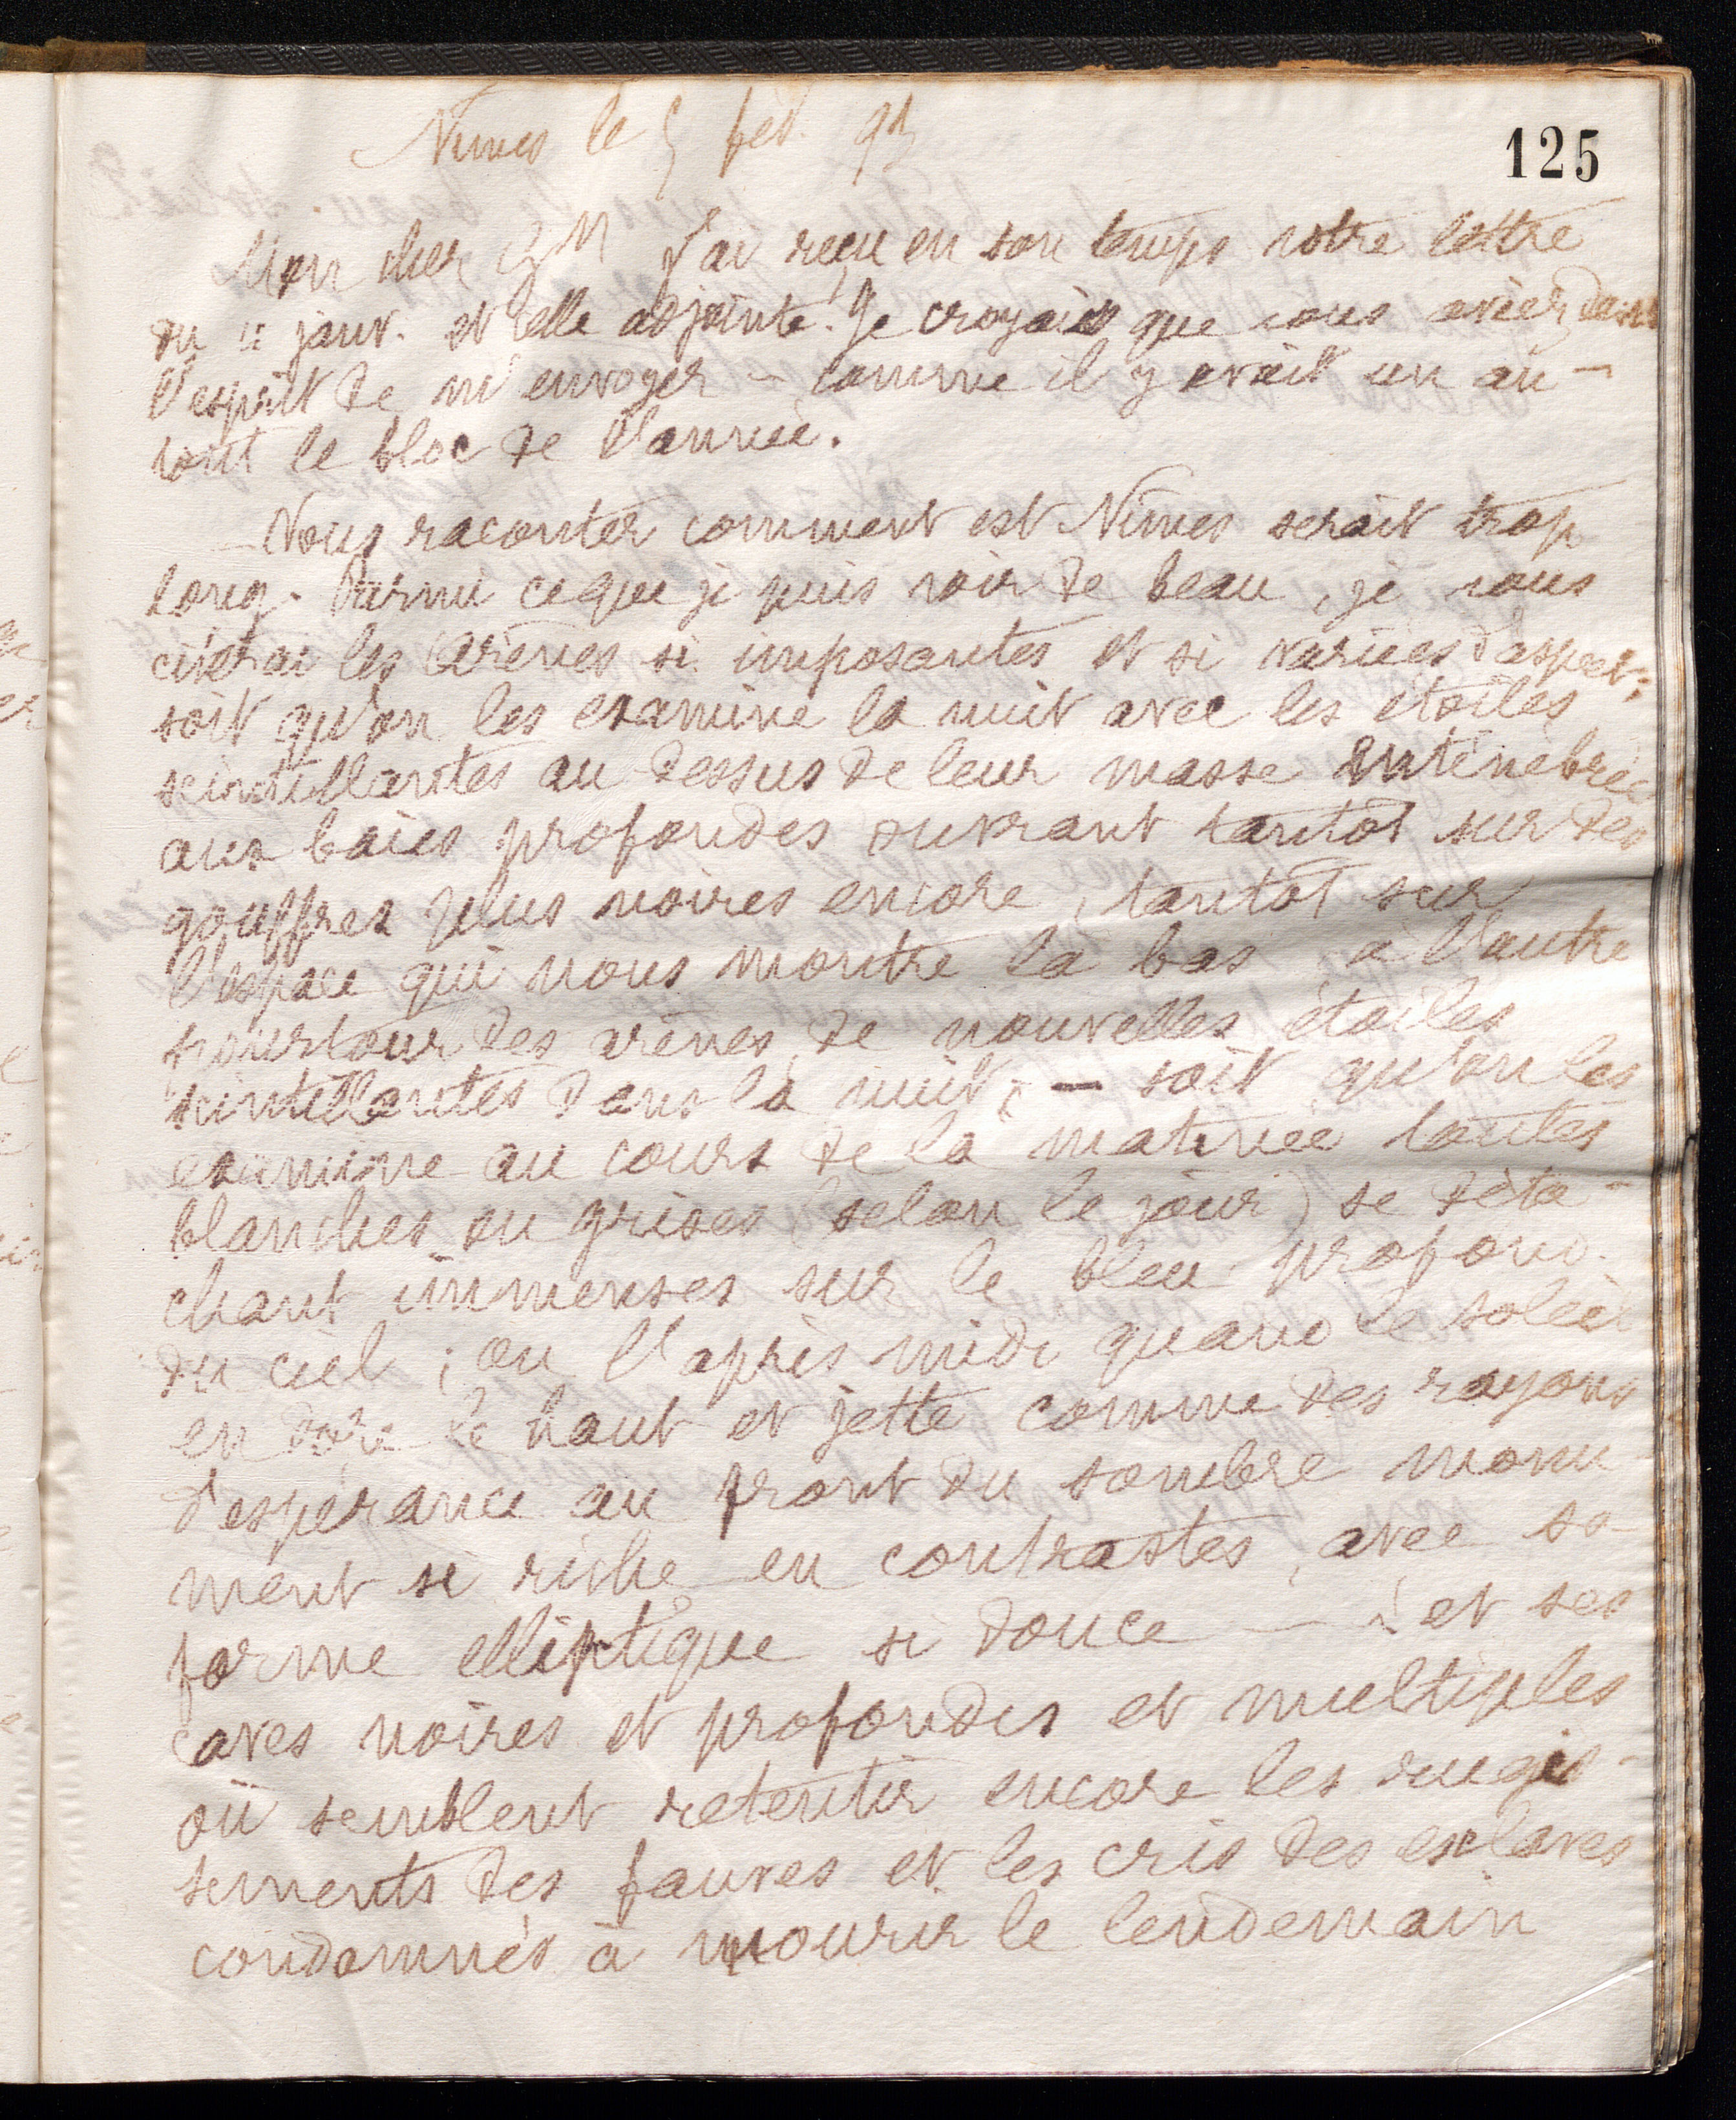 125
Nimes le 5 fev. 93
Mon cher J'ai reçu en son temps votre lettre
du janv. et celle adjointe. Je croyais que vous aviez dans
l'esprit de m'envoyer - comme il y avait un an -
tout le bloc de l'année.
- Vous raconter comment est Nimes serait trop
long. Parmi ce que je puis voir de beau, je vous
citerai les arènes si imposantes et si variées d'aspect;
soit qu'on les examine la nuit avec les étoiles
scintillantes au dessus de leur masse enténébrée
aux baies profondes ouvrant tantôt sur des
gouffres plus noires encore, tantôt sur
l'espace qui nous montre là bas à l'autre
pourtour des arènes de nouvelles étoiles
scintillantes dans la nuit; - soit qu'on les
examine au cours de la matinée toutes
blanches ou grises (selon le jour) se déta-
chant immenses sur le bleu profond
du ciel; ou l'après midi quand le soleil
en dore le haut et jette comme des rayons
d'espérance au front du sombre monu-
ment si riche en contrastes, avec sa
forme elliptique si douce - et ses
caves noires et profondes et multiples
où semblent retentir encore les rugis-
sements des fauves et les cris des esclaves
condamnés à mourir le lendemain